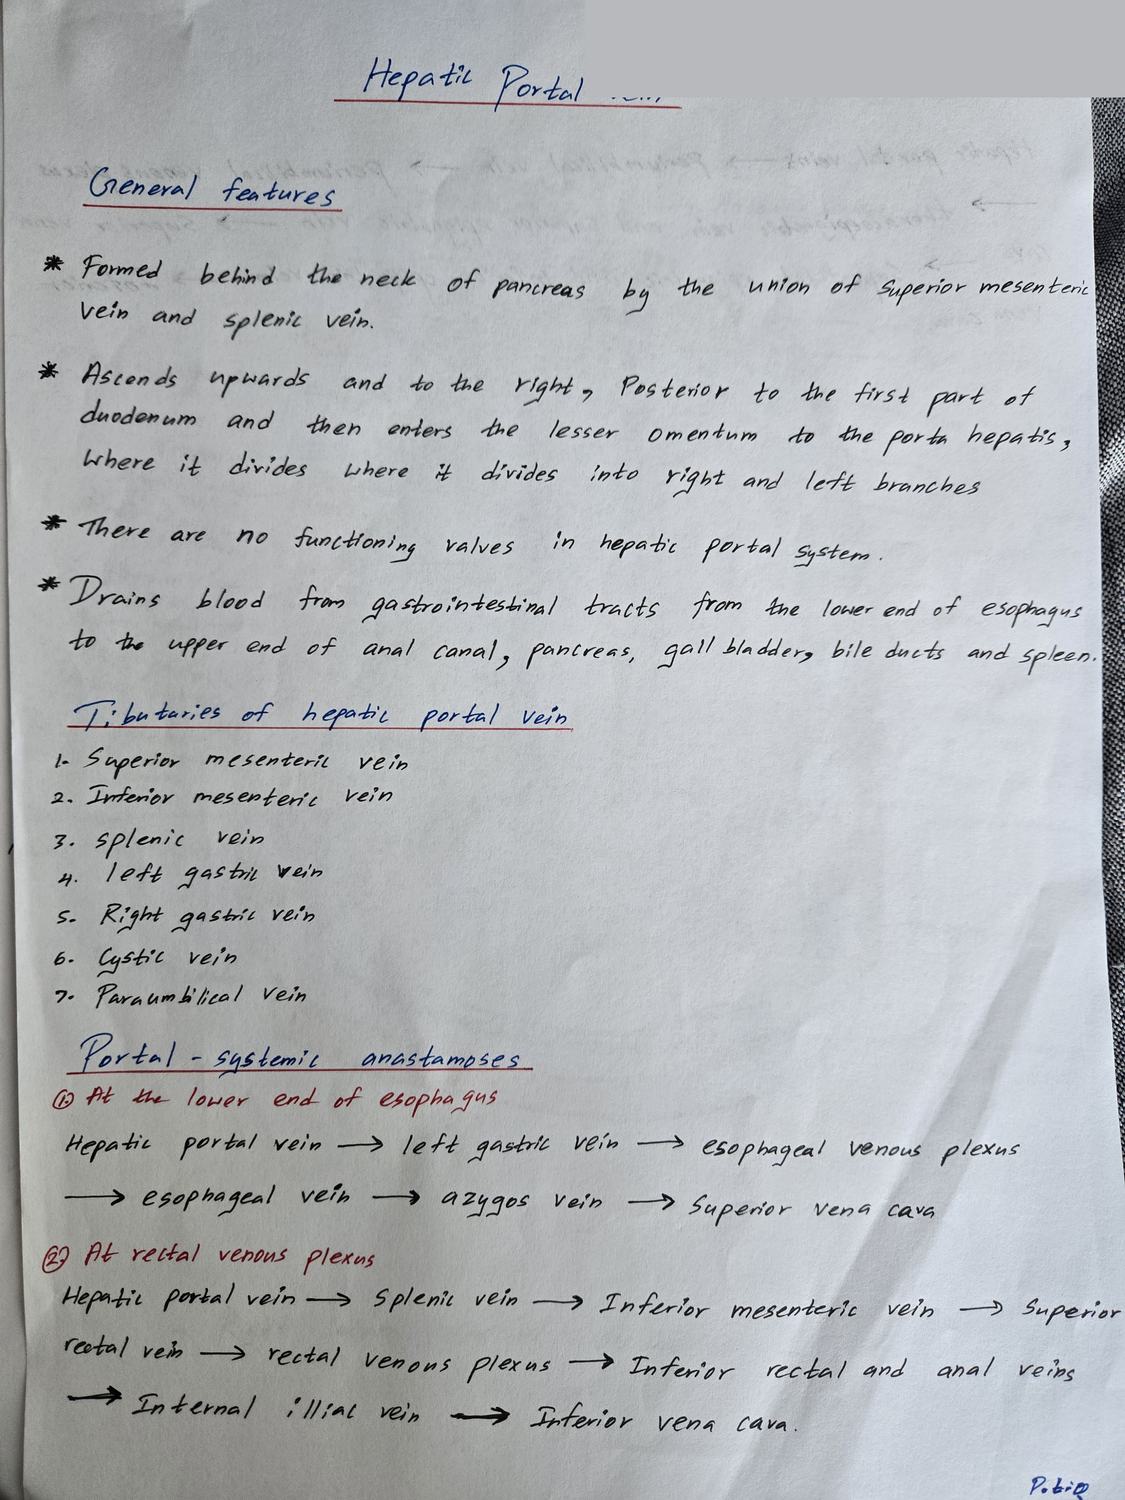 Hepatic Portal vein
General features
* Formed behind the neck of pancreas by the union of superior mesenteric
vein and splenic vein.
* Ascends upwards and to the right, Posterior to the first part of
duodenum and then enters the lesser omentum to the porta hepatis,
where it divides where it divides into right and left branches
* There are no functioning valves in hepatic portal system.
* Drains blood from gastrointestinal tracts from the lower end of esophagus
to the upper end of anal canal, pancreas, gall bladder, bile ducts and spleen.
Tributaries of hepatic portal vein
1. Superior mesenteric vein
2. Inferior mesenteric vein
3. splenic vein
4. left gastric vein
5. Right gastric vein
6. Cystic vein
7. Paraumbilical vein
Portal - systemic anastamoses
① At the lower end of esophagus
Hepatic portal vein → left gastric vein → esophageal venous plexus
→ esophageal vein → azygos vein → Superior vena cava
② At rectal venous plexus
Hepatic portal vein → Splenic vein → Inferior mesenteric vein → Superior
rectal vein → rectal venous plexus → Inferior rectal and anal veins
→ Internal illial vein → Inferior vena cava.